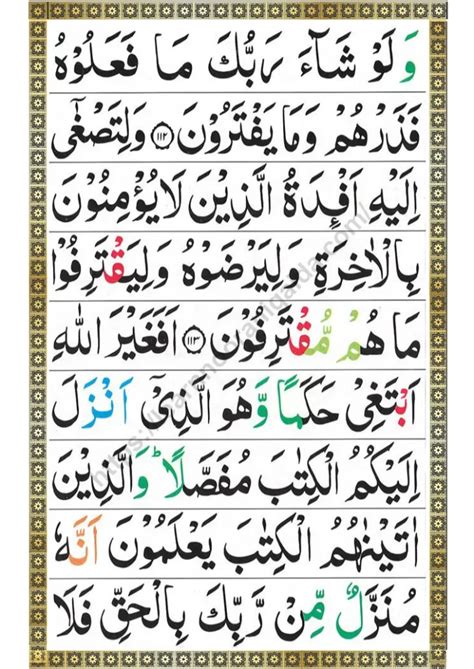 وَلَوْ شَآءَ رَبُّكَ مَا فَعَلُوْهُ
فَذَرْهُمْ وَمَا يَفْتَرُوْنَ ۝۱۱۲ وَلِتَصْغٰٓى
اِلَيْهِ اَفْـِٕدَةُ الَّذِيْنَ لَا يُؤْمِنُوْنَ
بِالْاٰخِرَةِ وَلِيَرْضَوْهُ وَلِيَقْتَرِفُوْا
مَا هُمْ مُّقْتَرِفُوْنَ ۝۱۱۳ اَفَغَيْرَ اللّٰهِ
اَبْتَغِىْ حَكَمًا وَّهُوَ الَّذِىْٓ اَنْزَلَ
اِلَيْكُمُ الْكِتٰبَ مُفَصَّلًا ؕ وَالَّذِيْنَ
اٰتَيْنٰهُمُ الْكِتٰبَ يَعْلَمُوْنَ اَنَّهٗ
مُنَزَّلٌ مِّنْ رَّبِّكَ بِالْحَقِّ فَلَا